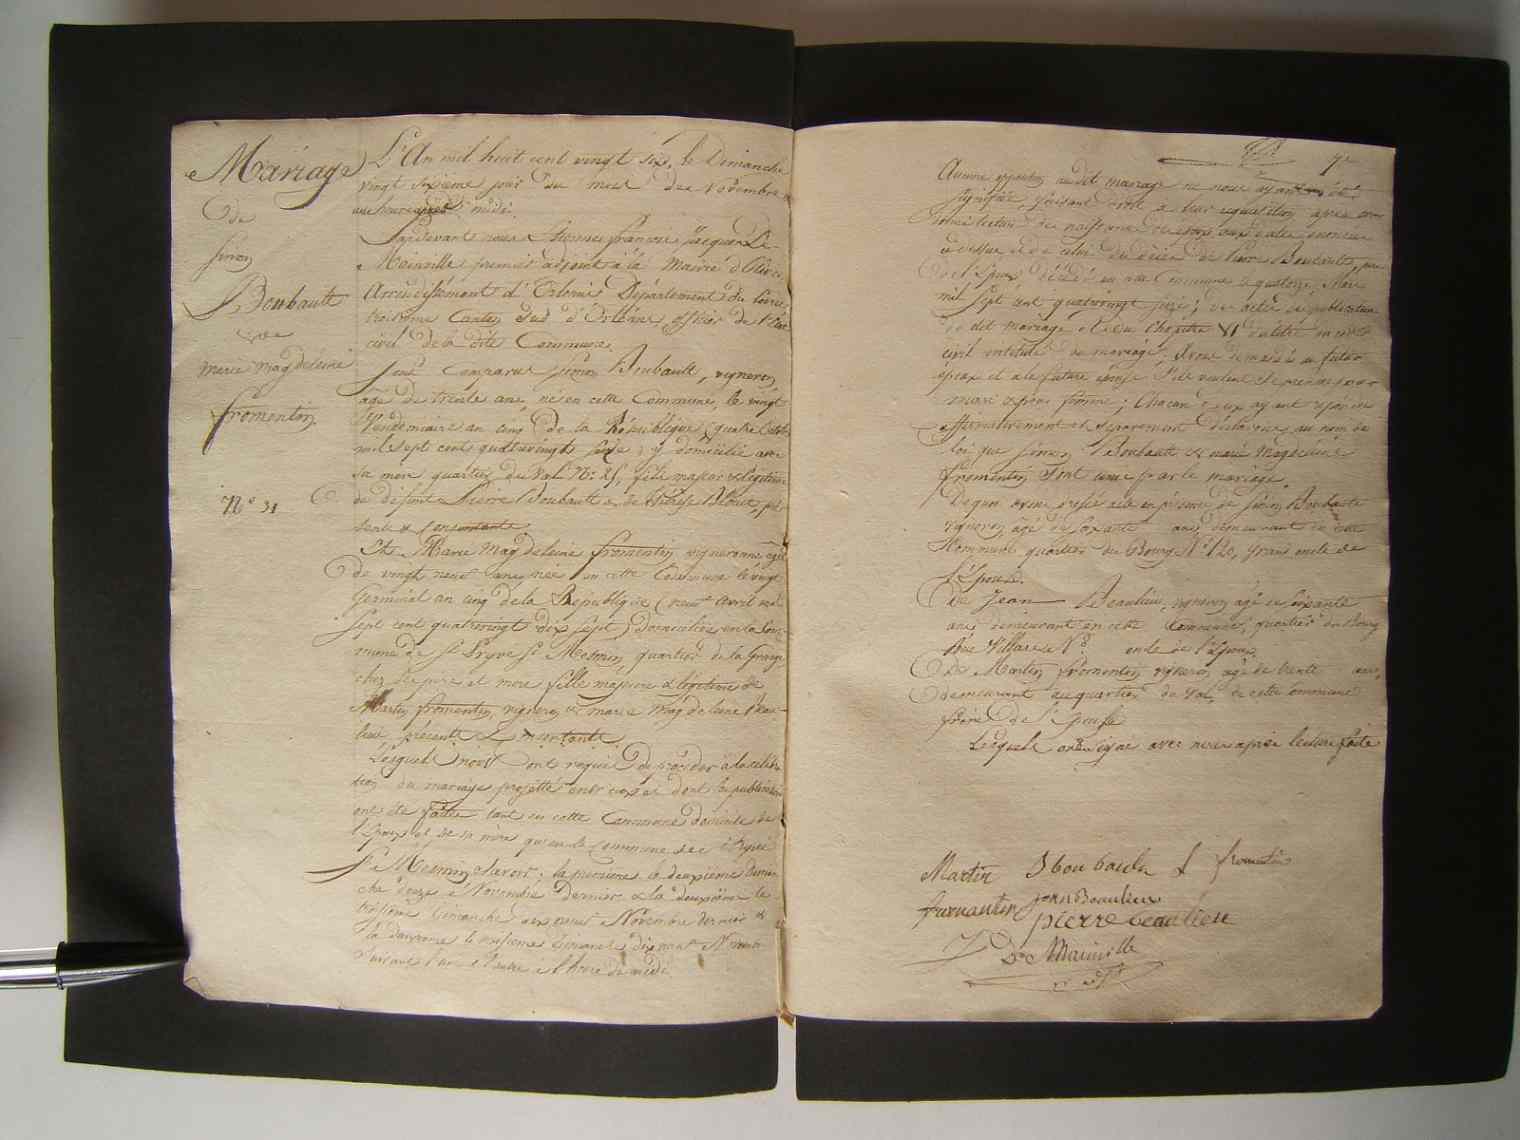 Mariage
de
simon
Boubault
et de
marie magdeleine
fromentin
N.º 31
L'An mil huit cent vingt six, le Dimanche
vingt sixième jour du mois de Novembre
une heure après midi.
Pardevant nous Etienne françois Jacques De
Mainville premier adjoint à la Mairie d'Olivet
Arrondissement d'Orléans Département du Loiret
troisième Canton Sud d'Orléans, officier de l'état
civil de la dite Commune.
Sont comparus simon Boubault, vigneron
agé de trente ans, né en cette Commune, le vingt
Vendemiaire an cinq de la République (quatre
mil sept cent quatrevingt seize) y domicilié avec
sa mère quartier du Val N.º 25, fils majeur & légitime
de défunt Pierre Boubault & de thérèse, pré-
sente & consentante
Et Marie Magdeleine fromentin, vigneronne, agée
de vingt neuf ans, née en cette Commune le vingt
Germinal an cinq de la République (neuf Avril mil
sept cent quatrevingt dix sept) domiciliée en la Com-
mune de St Pryvé St Mesmin, quartier de la Grange
chez ses père et mère fille majeure & légitime de
Martin fromentin, vigneron & marie Magdeleine Beau-
lieu présents & consentants
Lesquels nous ont requis de procéder à la célébra-
tion du mariage projetté entr'eux et dont les publications
ont été faites tant en cette Commune domicile de
l'Epoux et de sa mère qu'en la Commune de St Pryvé
St Mesmin, savoir: la première le deuxième Diman-
che douze Novembre dernier & la deuxième le
troisième Dimanche dix neuf Novembre dernier &
la deuxième le troisième Dimanche dix neuf Novembre
suivant l'une & l'autre à l'heure de midi
Aucune opposition au dit mariage ne nous ayant été
signifiée, faisant droit à leur requisition, après avoir
donné lecture des actes énoncés
ci dessus, et de celui du décès de Pierre Boubault, père
de l'Epoux, décédé en cette Commune le quatorze
mil sept cent quatrevingt seize; des actes de publication
du dit mariage et du Chapitre VI du titre du code
civil intitulé du mariage, Avons demandé au futur
époux et à la future épouse s'ils veulent se prendre pour
mari & pour femme; Chacun d'eux ayant répondu
affirmativement et séparément Déclarons, au nom de
la loi que simon Boubault & marie Magdeleine
fromentin sont unis par le mariage.
De quoi avons dressé acte en présence de simon Boubault
vigneron, âgé de soixante ans demeurant en cette
Commune quartier du Bourg N.º 120, grand oncle de
l'Epoux.
De Jean Beaulieu, vigneron agé de soixante
ans demeurant en cette Commune, quartier du Bourg
Rue Villare N.º oncle de l'Epouse
De Martin fromentin vigneron agé de trente ans,
demeurant au quartier du Val de cette Commune
frère de l'Epouse
Lesquels ont signé avec nous après lecture faite
Martin Sboubault f fromentin
furmantin jean Beaulieu
pierre beaulieu
De Mainville